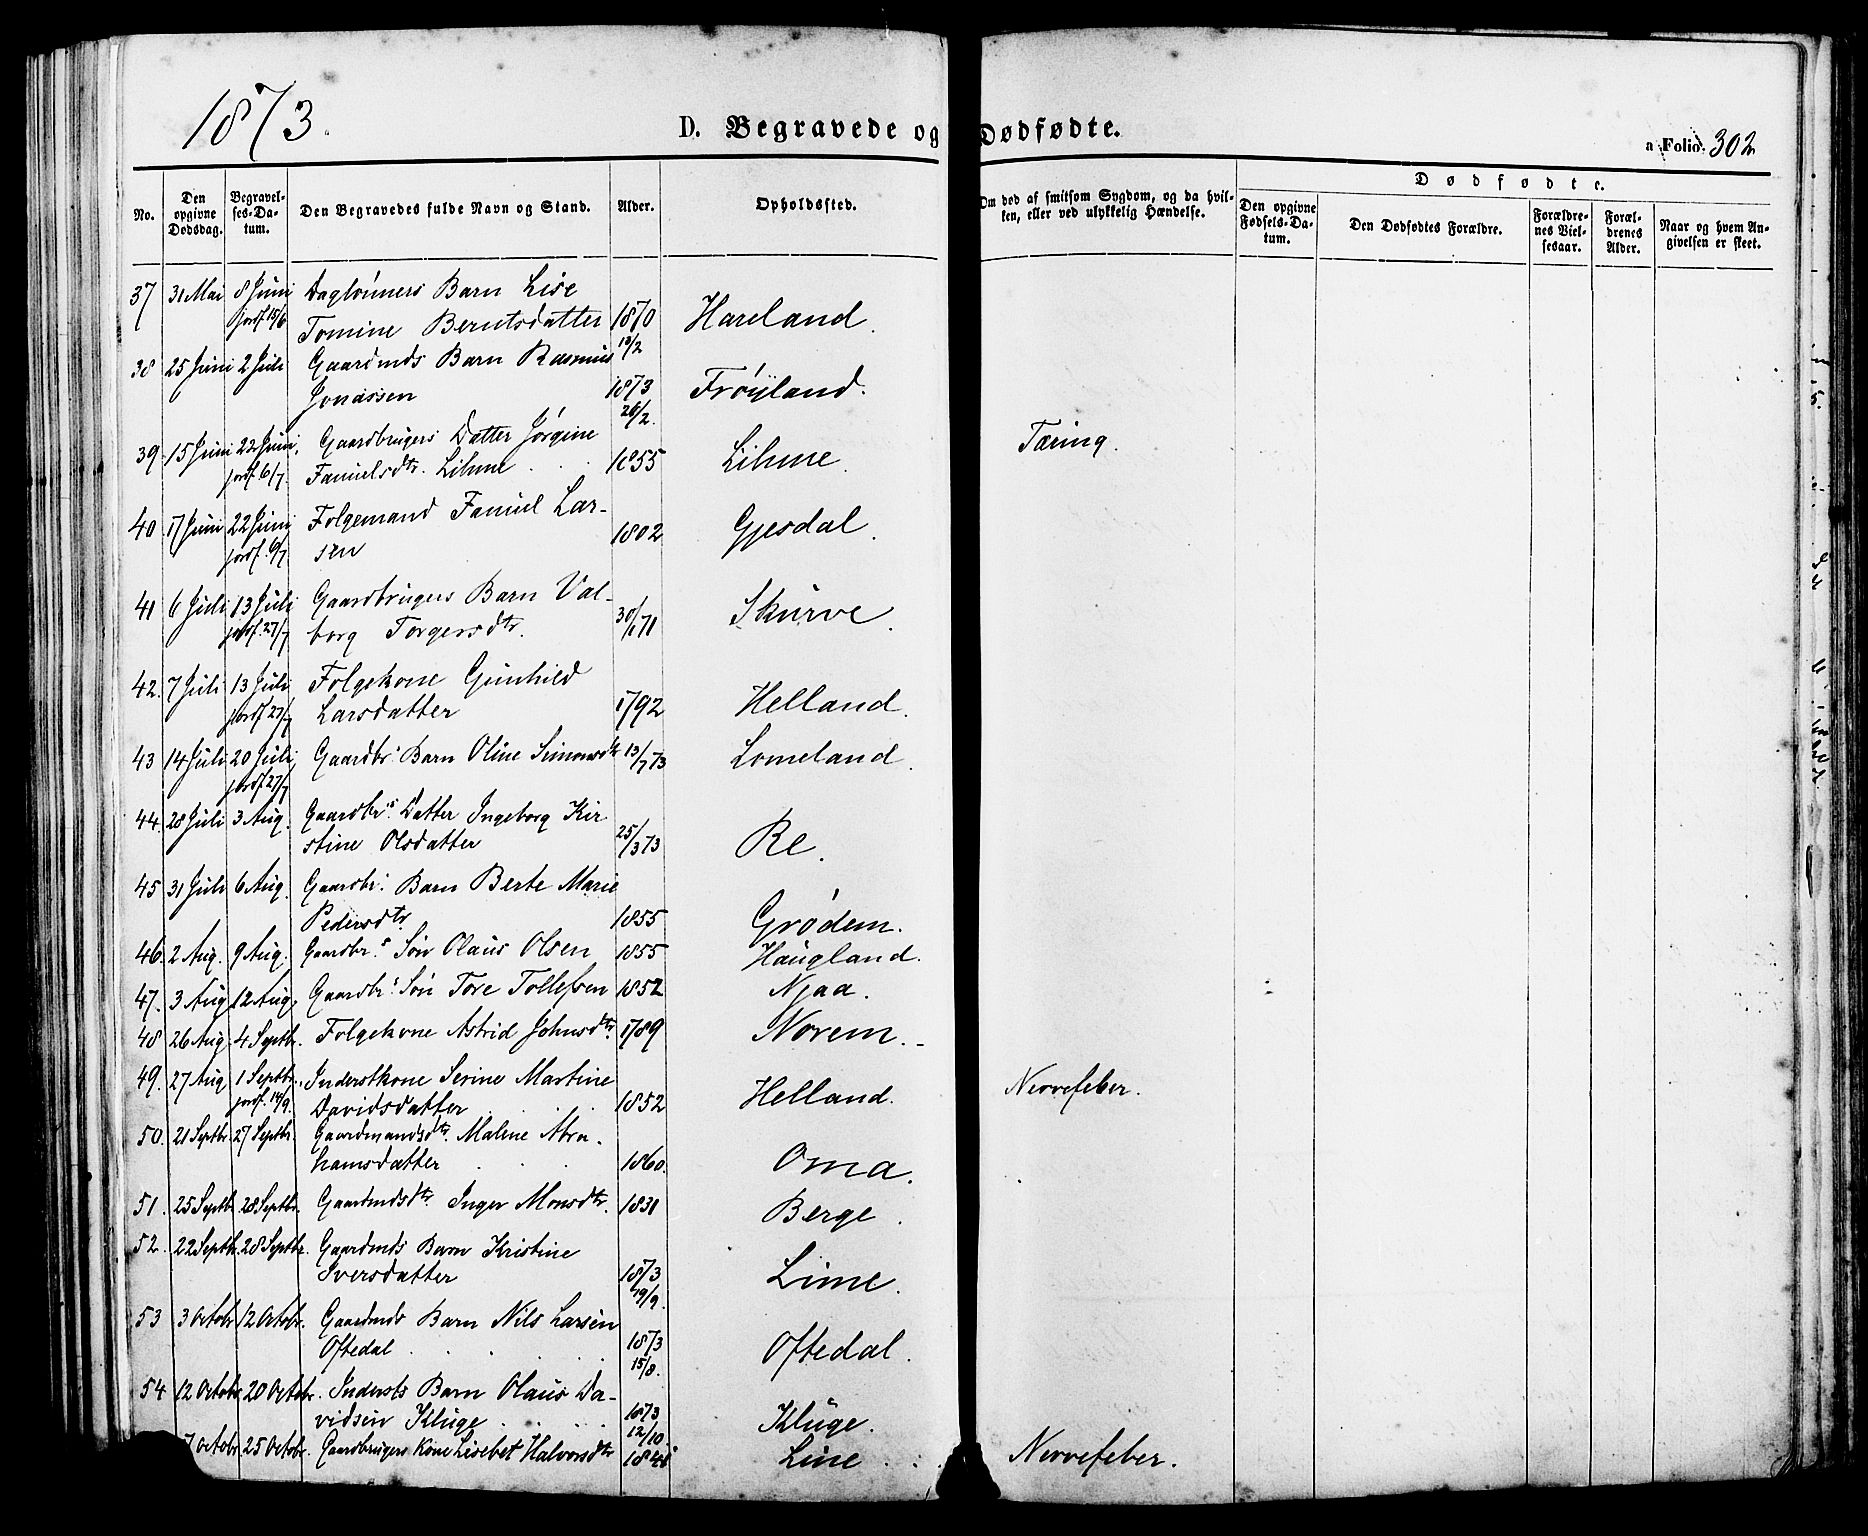 1873.
D. Begravede og Dødfødte.
a Folio 302
No.
Den opgivne Dødsdag.
Begravelses-Datum.
Den Begravedes fulde Navn og Stand.
Alder.
Opholdssted.
Om død af smitsom Sygdom, og da hvilken, eller ved ulykkelig Hændelse.
Dødfødte.
Den opgivne Fødsels-Datum.
Den Dødfødtes Forældre.
Forældrenes Vielsesaar.
Forældrenes Alder.
Naar og hvem Angivelsen er skeet.
37 31 Mai 8 Juni Daglønners Barn Lise
jordf. 15/6 Tomine Berntsdatter 1870 Hareland.
38 25 Juni 2 Juli Gaardmds Barn Rasmus 13/2
Jonassen 1873 Frøyland.
26/2.
39. 15 Juni 22 Juni, Gaardbrugers Datter Jørgine Tæring.
jordf. 6/7. Samuelsdtr. Lihme 1855 Lihme.
40. 17 Juni 22 Juni Folgemand Samuel Lar-
jordf. 6/7. sen 1802 Gjesdal.
41 6 Juli 13 Juli Gaardbrugers Barn Val-
jordf. 27/7 borg Torgersdtr. 30/1 71 Skurve.
42. 7 Juli 13 Juli Folgekone Gunhild
jordf 27/7 Larsdatter 1792 Helland.
43 14 Juli 20 Juli Gaardbr. Barn Oline Simonsdtr 13/7 73 Lomeland.
jordf 27/7
44. 28 Juli 3 Aug. Gaardbrs. Datter Ingeborg Kir
stine Olsdatter 25/3 73 Re.
45 31 Juli 6 Aug. Gaardbr. Barn Berte Marie
Pedersdtr. 1855 Grødem.
46. 2 Aug. 9 Aug. Gaardbr.s Søn Olaus Olsen 1855 Haugland.
47. 3 Aug 12 Aug, Gaardbr.s Søn Tore Tollefsen 1852 Njaa.
48 26 Aug. 4 Septbr. Folgekone Astrid Johnsdtr. 1789 Norem.
49. 27 Aug 1 Septbr. Inderstkone Serine Martine Nervefeber.
jordf. 14/9. Davidsdatter 1852 Helland.
50. 21 Septbr. 27 Septbr. Gaardmandsdtr. Malene Abra-
hamsdatter 1860. Oma.
51. 25 Septbr 28 Septbr. Gaardmdsdtr. Inger Monsdtr. 1831 Berge.
52. 22 Septbr. 28 Septbr. Gaardmds Barn Kristine
Iversdatter 1873 Lime.
19/9.
53 3 Octobr 12 Octobr. Gaardmds Barn Nils Larsen
Oftedal 1873 Oftedal.
15/8.
54 12 Octobr 20 Octobr. Indersts Barn Olaus Da-
vidsen Kluge 1873 Kluge.
12/10
7 Octobr 25 Octobr. Gaardbrugers Kone Lisebet Halvorsdtr Line Nervefeber.